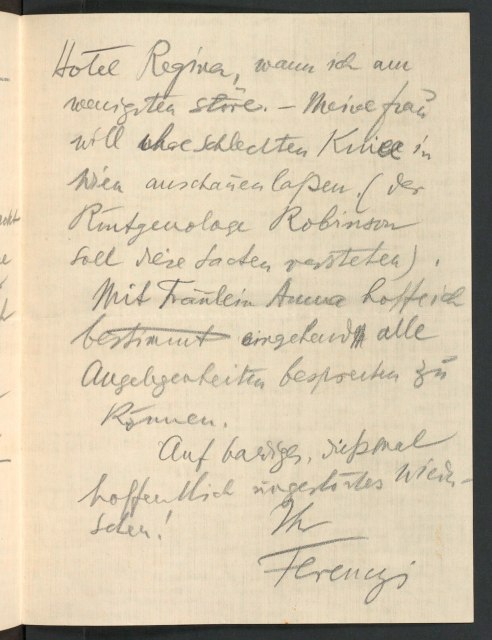 Hotel Regina, wann ich am
wenigsten störe. – Meine frau
will ihre schlechten Kniee in
Wien anschauen laßen. (der
Röntgenologe Robinson
soll diese Sachen verstehen).
Mit Fräulein Anna hoffe ich
bestimmt eingehend alle
Angelegenheiten besprechen zu
können.
Auf baldiges, dießmal
hoffentlich ungestörtes Wieder-
sehen!
Ihr
Ferenczi